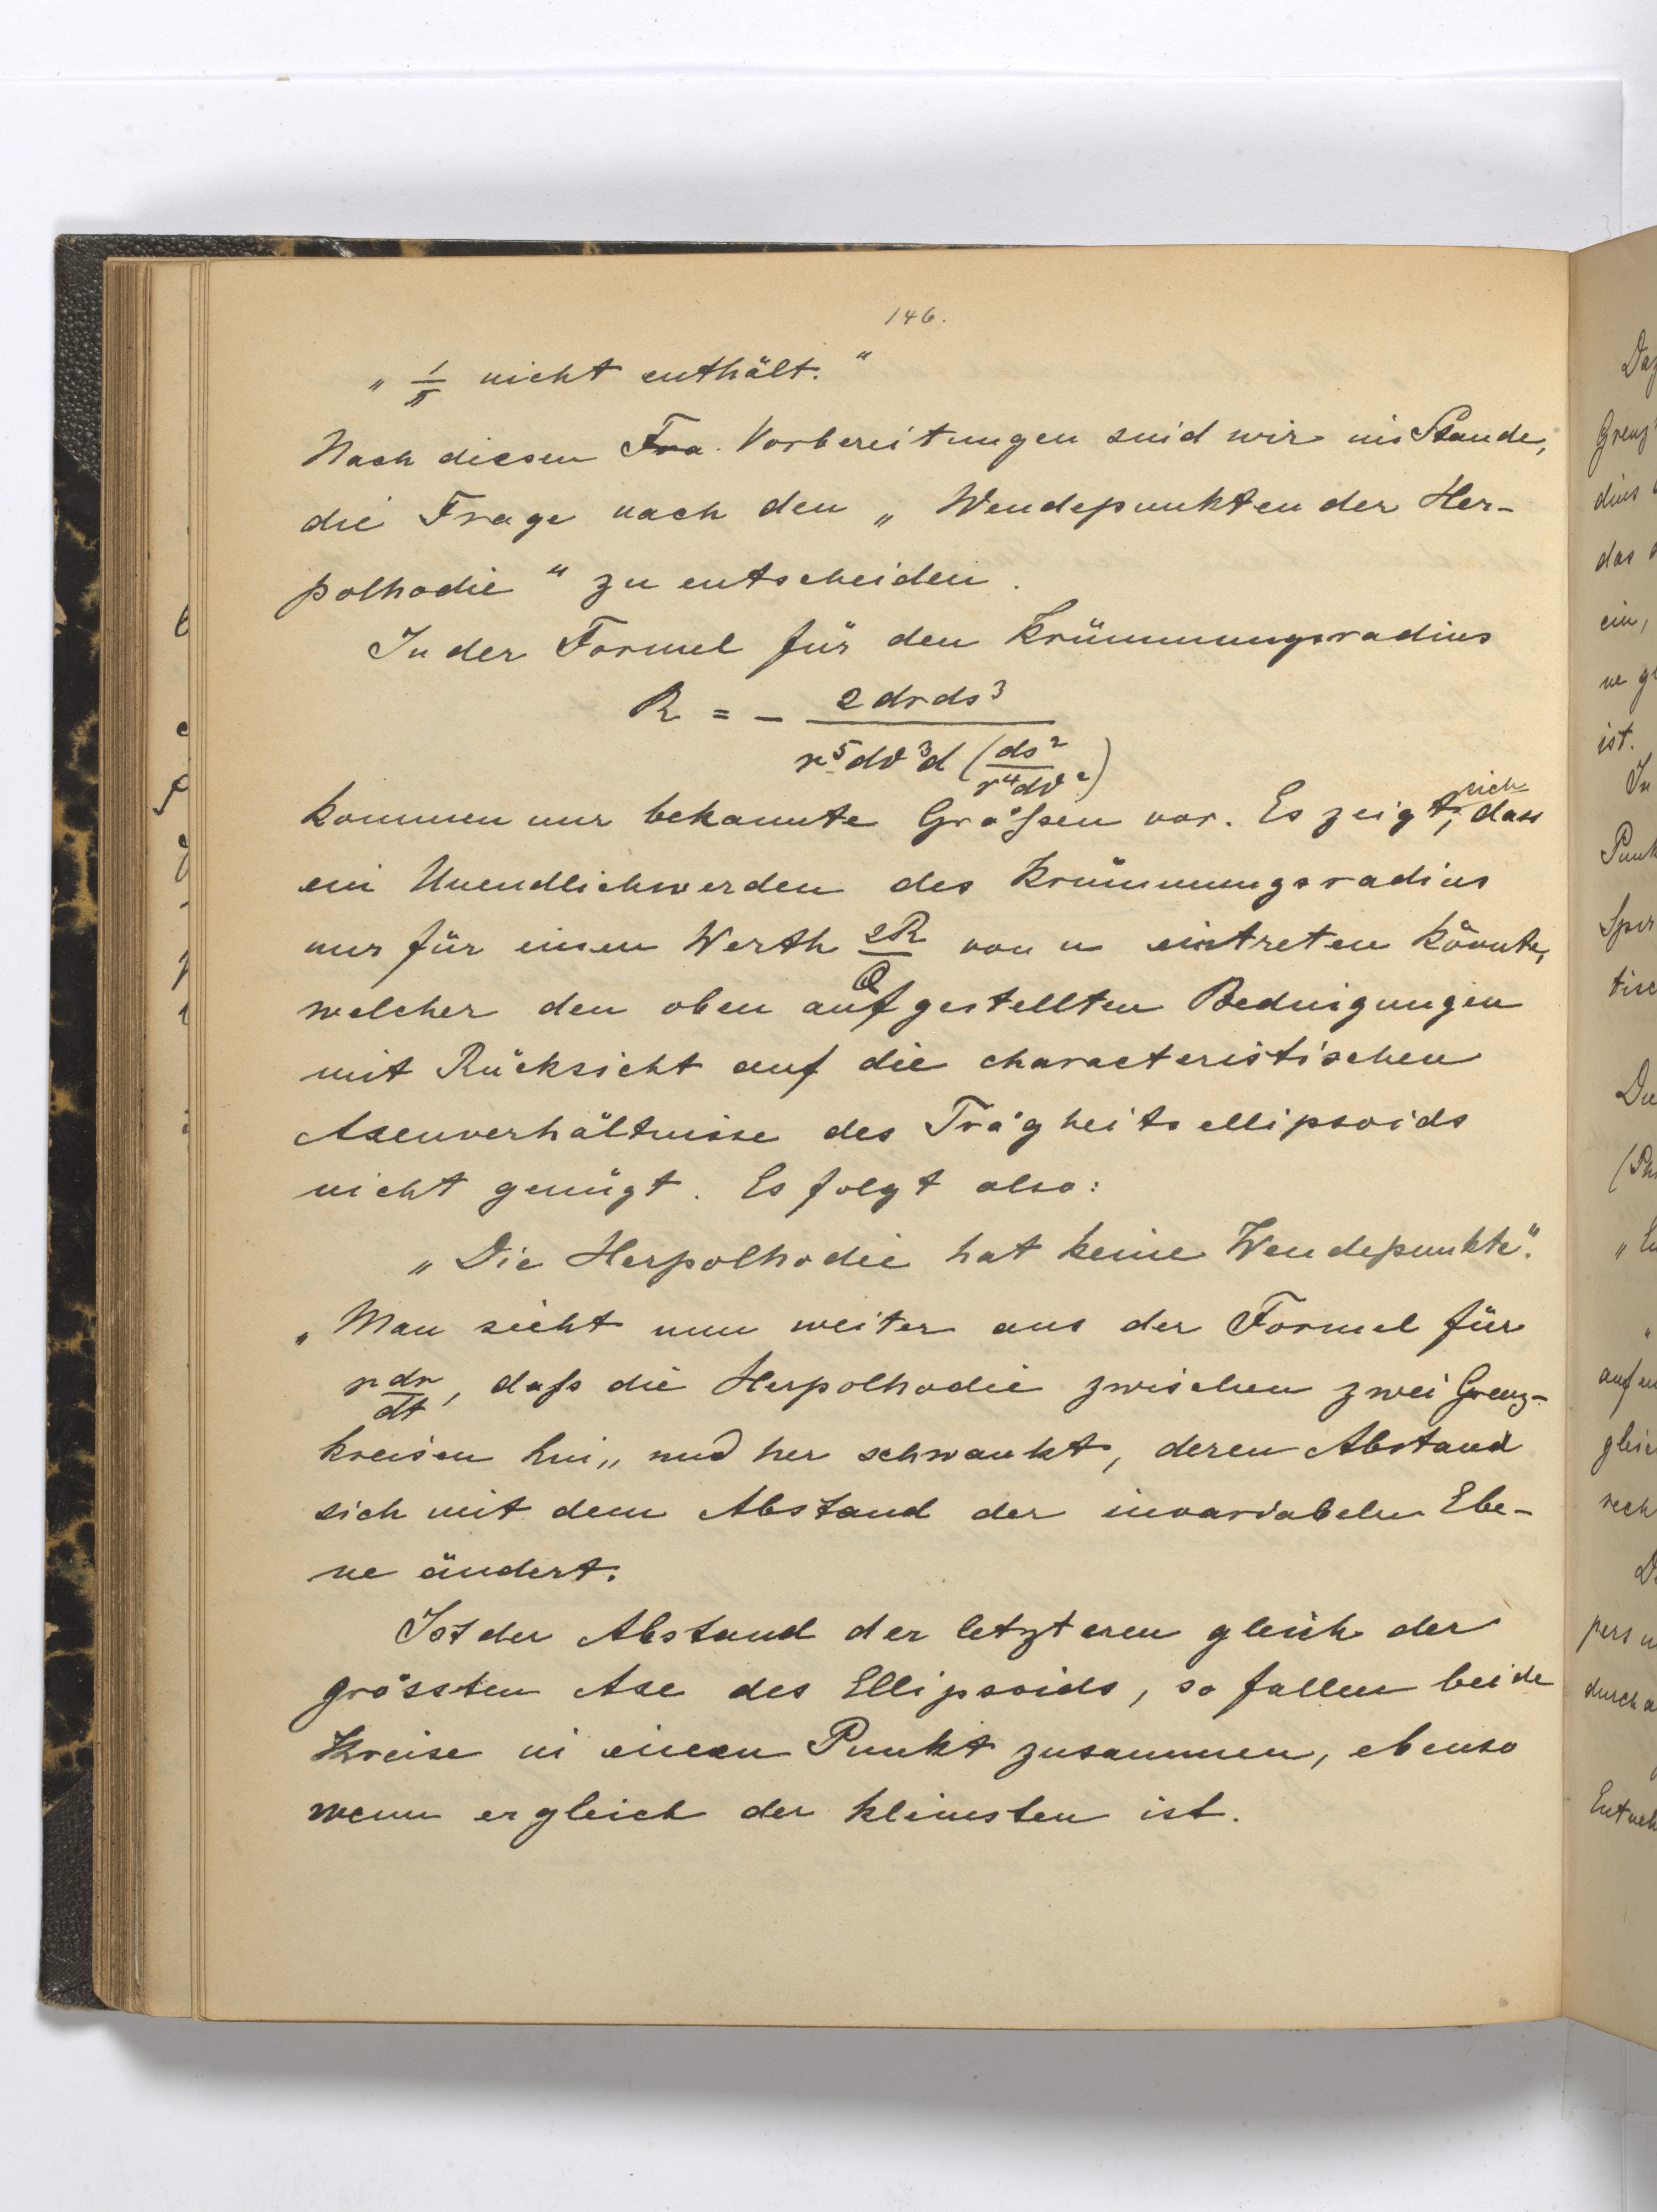 146.
„ 1/π nicht enthält.“
Nach diesen Fra. Vorbereitungen sind wir im Stande,
die Frage nach den „ Wendepunkten der Her-
polhodie “ zu entscheiden.
In der Formel für den Krümmungsradius
R = - 2 dr ds³ / r⁵ dϑ³ d (ds² / r⁴ dϑ²)
kommen nur bekannte Größen vor. Es zeigt sich, dass
ein Unendlichwerden des Krümmungsradius
nur für einen Werth 2R/Q von u eintreten könnte,
welcher den oben aufgestellten Bedingungen
mit Rücksicht auf die characteristischen
Axenverhältnisse des Trägheitsellipsoids
nicht genügt. Es folgt also:
„Die Herpolhodie hat keine Wendepunkte“.
„Man sieht nun weiter aus der Formel für
r dr/dt, daß die Herpolhodie zwischen zwei Grenz-
kreisen hin„ und her schwankt, deren Abstand
sich mit dem Abstand der invariabelen Ebe-
ne ändert.
Ist der Abstand der letzteren gleich der
grössten Axe des Ellipsoids, so fallen beide
Kreise in einen Punkt zusammen, ebenso
wenn er gleich der kleinsten ist.